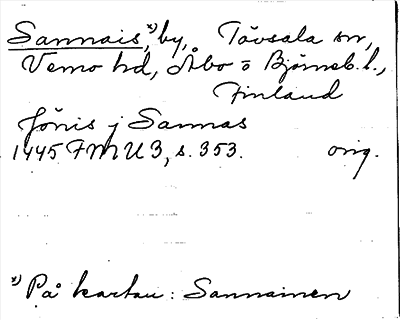 Sannais,*) by, Tövsala sn,
Vemo hd, Åbo o Björneb. l.,
Finland
Jönis j Sannas
1445 FMU 3, s. 353. orig.
*) På kartan: Sannainen